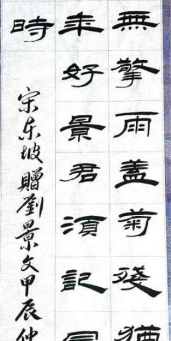 無擎雨蓋菊殘猶
年好景君須記
時
宋東坡贈劉景文甲辰仲